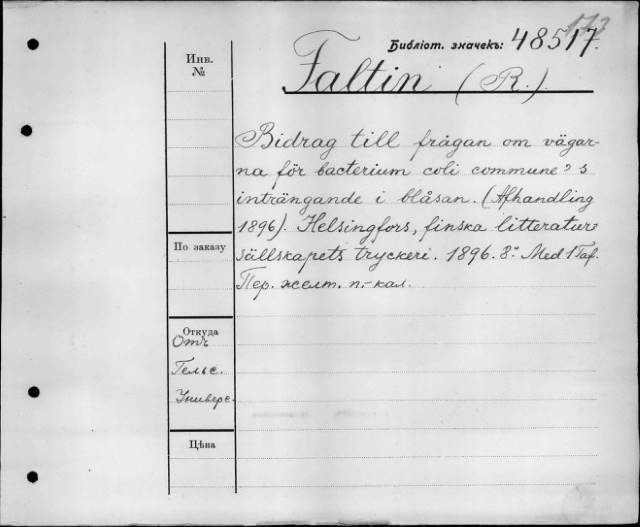 173
Библіот. значекъ: 48517.
Инв.
№
Faltin (R.)
Bidrag till frågan om vägar-
na för bacterium coli commune's
inträngande i blåsan. (Afhandling
1896). Helsingfors, finska litteratur-
sällskapets tryckeri. 1896. 8°. Med 1 Taf.
Пер. желт. п.-кал.
По заказу
Откуда
Отъ
Гельс.
Универс.
Цѣна